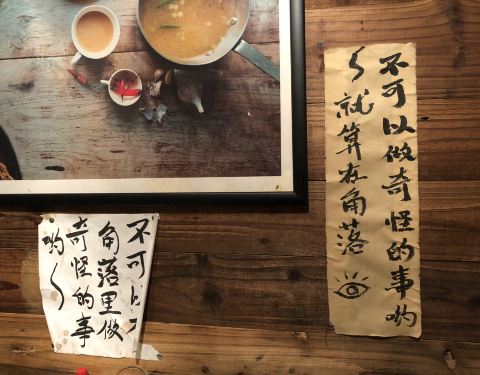 不可以做奇怪的事哟
～就算在角落
不可以
角落里做
奇怪的事
哟～